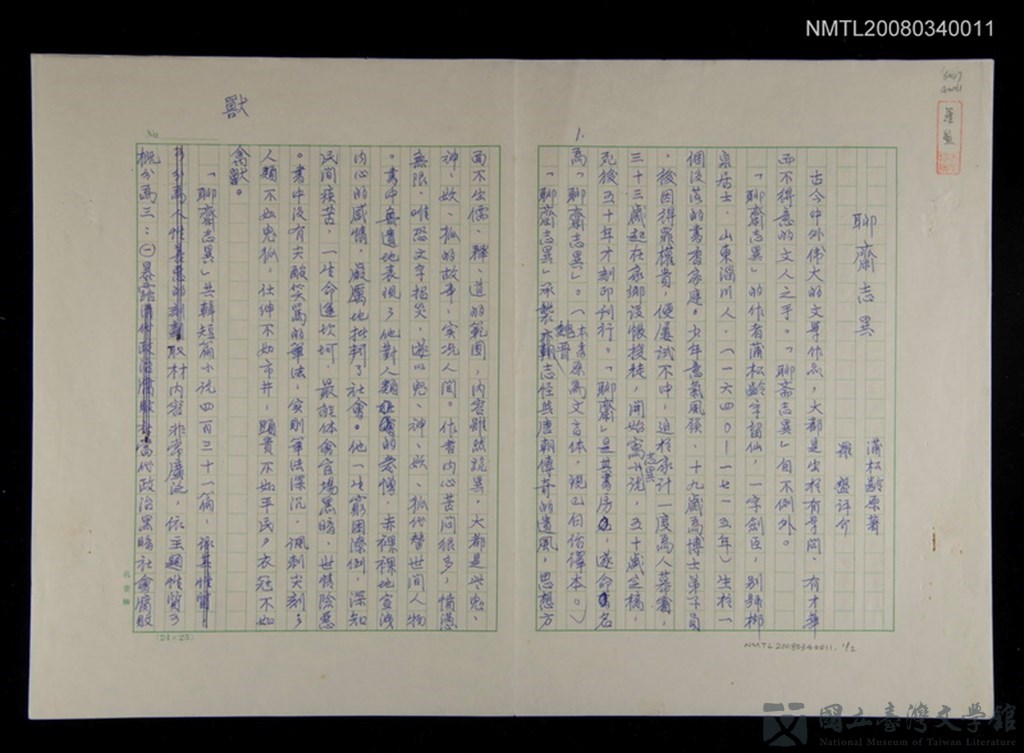 NMTL20080340011
聊齋志異
蒲松齡原著
羅盤評介
古今中外偉大的文學作品,大都是出於有學問、有才華
而不得意的文人之手。「聊齋志異」自不例外。
「聊齋志異」的作者蒲松齡字留仙,一字劍臣,別號柳
泉居士,山東淄川人,(一六四○-一七一五年)生於一
個沒落的書香家庭。少年意氣風發,十九歲為博士弟子員
,後因得罪權貴,便屢試不中,迫於家計一度為人幕賓,
三十三歲起在家鄉設帳授徒,開始寫志異小說,五十歲定稿,
死後五十年才刻印刊行。「聊齋」是其書房名,遂命名
為「聊齋志異」。(本書原為文言體,現已有白話譯本。)
「聊齋志異」承襲魏晉志怪與唐朝傳奇的遺風,思想方
1.
面不出儒、釋、道的範圍,內容雖然詭異,大都是些鬼、
神、妖、狐的故事,實況人間。作者內心苦悶很多,憤懣
無限,唯恐文字招災,遂以鬼、神、妖、狐代替世間人物
。書中無遺地表現了他對人類的愛憎,赤裸裸地宣洩
內心的感情,嚴厲地批判了社會。他一生窮困潦倒,深知
民間疾苦,一生命運坎坷,最能体會官場黑暗、世情險惡
。書中沒有尖酸笑罵的筆法,實則筆法深沉,諷刺尖刻,
人類不如鬼狐,仕紳不如市井,顯貴不如平民,衣冠不如
禽獸。
獸
「聊齋志異」共輯短篇小說四百三十一篇,
取材內容非常廣泛,依主題性質可
概分為三:(一)暴露當代政治黑暗社會腐敗
No
(24×25)
NMTL20080340011. 1/2
羅盤
國立臺灣文學館
National Museum of Taiwan Literature